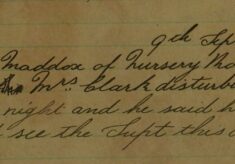 9th Sep
Maddox of Nursery
Mrs. Clark disturb
night and he said h
see the Supt this